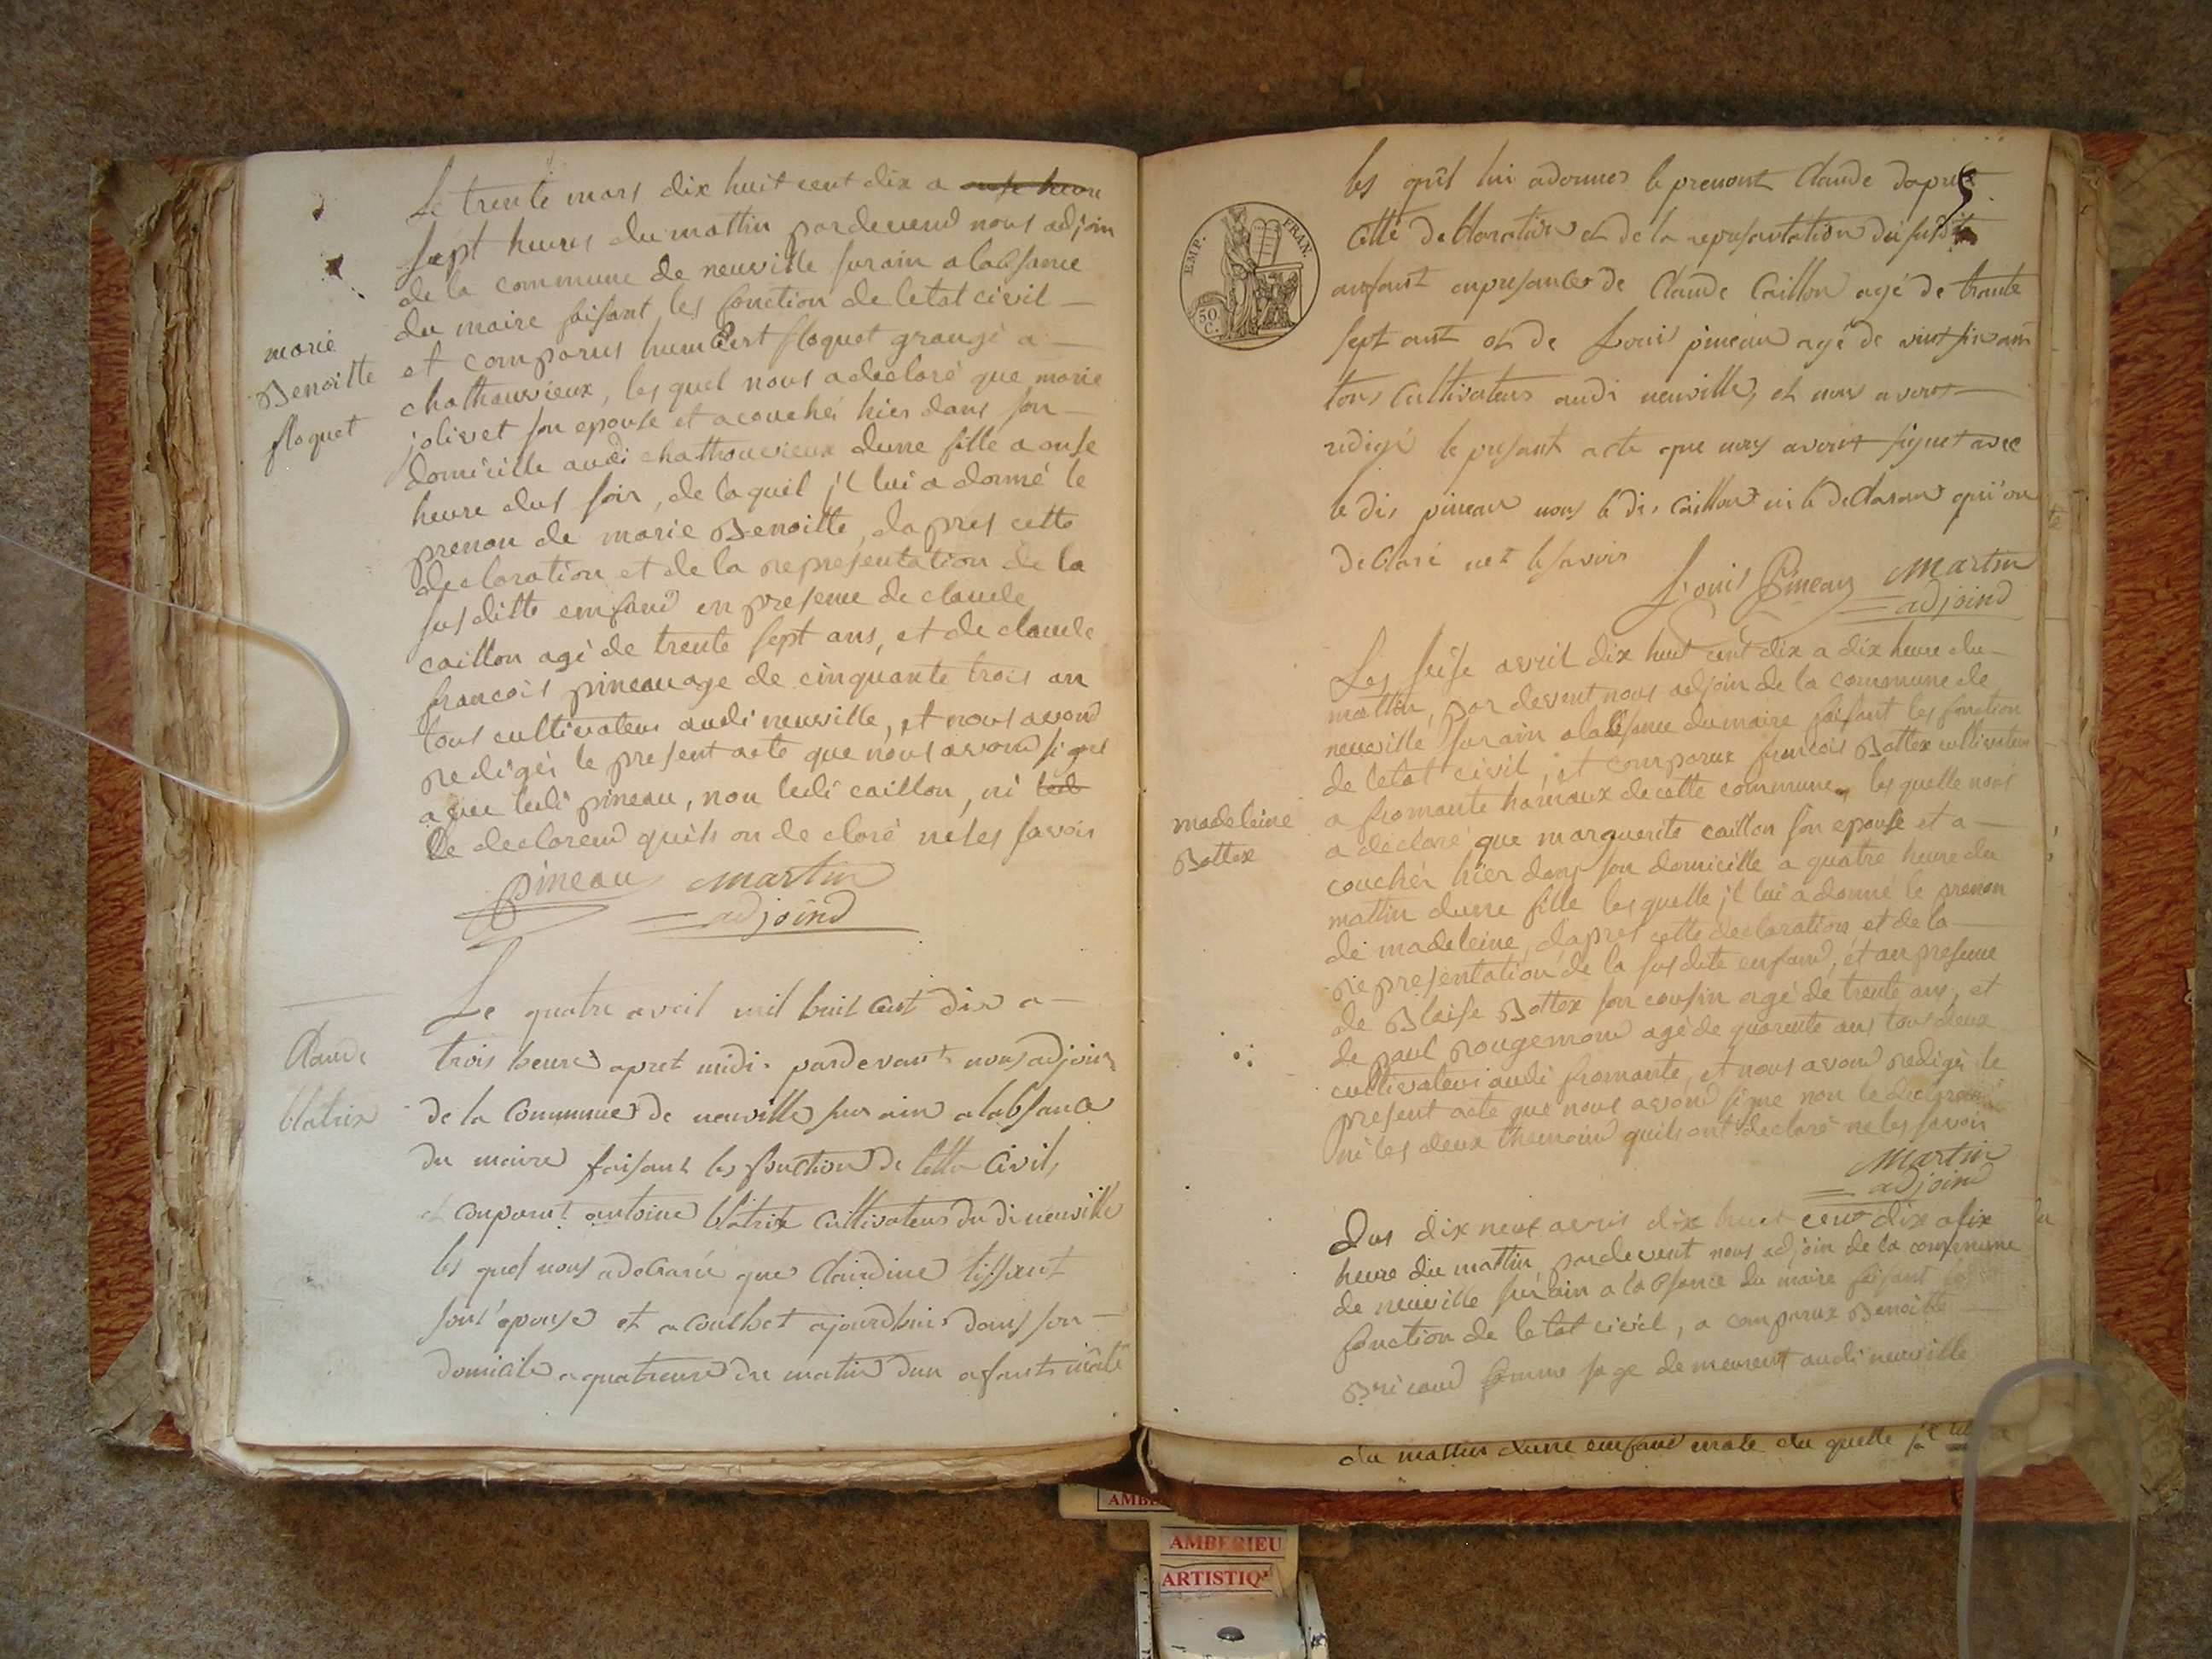 Le trente mars dix huit cent dix a onse heure
sept heures du mattin pardevend nous adjoin
de la commune de neuville surain a labsance
du maire faisant les fonction de letat civil
et comparus humbert floquet grangé a
chathauvieux, les quel nous a declaré que marie
jolivet son epouse et acouchéi hier dans son
domicille audi chathouvieux dunne fille a onse
heure dus soir, de laquil j'l lui a donné le
prenon de marie Benoitte, dapres cette
declaration et de la representation de la
susditte emfand en presense de claude
caillon agé de trente sept ans, et de claude
francois pineau age de cinquante trois an
tous cultivateur audi neuville, et nous avond
redigéi le present acte que nous avond signé
aveu ledi pineau, non ledi caillon, ni led
Le declarend quils on de claré neles savoir
Pineau martin
adjoind
marie
Benoitte
floquet
Le quatre avril mil huit cent dix a
trois heure apret midi pardevant nous adjoin
de la commune de neuville sur ain a labsance
du maire faisant les fonction de letta civil,
et comparut antoine blatrix cultivateur du di neuville
les quel nous a declaré que claudine tissent
son epouse et a couchet ajourdhui dans son
domicile a quatreure du matin dun afant mâle
Claude
blatrix
les quel lui a donner le prenont Claude dapres
5
cette declaration et de la represantation du susdit
anfant enpresance de Claude Caillon agé de trante
sept ant et de Louis pineau agé de vint six ant
tous cultivateur audi neuville, et nous avons
redigé le present acte que nous avont signet avec
le dit pineau nons le dit caillon ni le declarant qui on
declaré net le savoir
Louis Pineau martin
adjoind
EMP. FRAN.
50 C.
Les seise avril dix huit cent dix a dix heure du
mattin, par devent nous adjoin de la commune de
neuville sur ain a labsence du maire faisant les fonction
de l'etat civil, et comparux francois Bottex cultivateur
a fromante hamaux de cette commune, les quelle nous
a declaré que marguerite caillon son epouse et a
couchéi hier dans son domicille a quatre heure du
mattin dunne fille les quelle j'l lui a donné le prenon
de madeleine, dapres cette declaration et de la
representation de la sus dite enfand, et au presense
de Blaise Bottex son cousin agé de trente ans, et
de paul Rougemond agé de quarente ans tous deux
cultivateur audi fromante, et nous avond redigéi le
present acte que nous avond signe non le declarant
ni les deux themoind quils ont declaré ne les savoir
martin
adjoind
madeleine
Bottex
Dus dix neuf avris dix huit cent dix a six
heure du mattin pardevent nous adjoin de la commune
de neuville sur ain a labsence du maire faisant les
fonction de letat civil, a comparux Benoitte
Bricaud femme sage demeurent audi neuville
du mattin dunne emfand male du quelle j'l lui a
AMBERIEU
ARTISTIQ